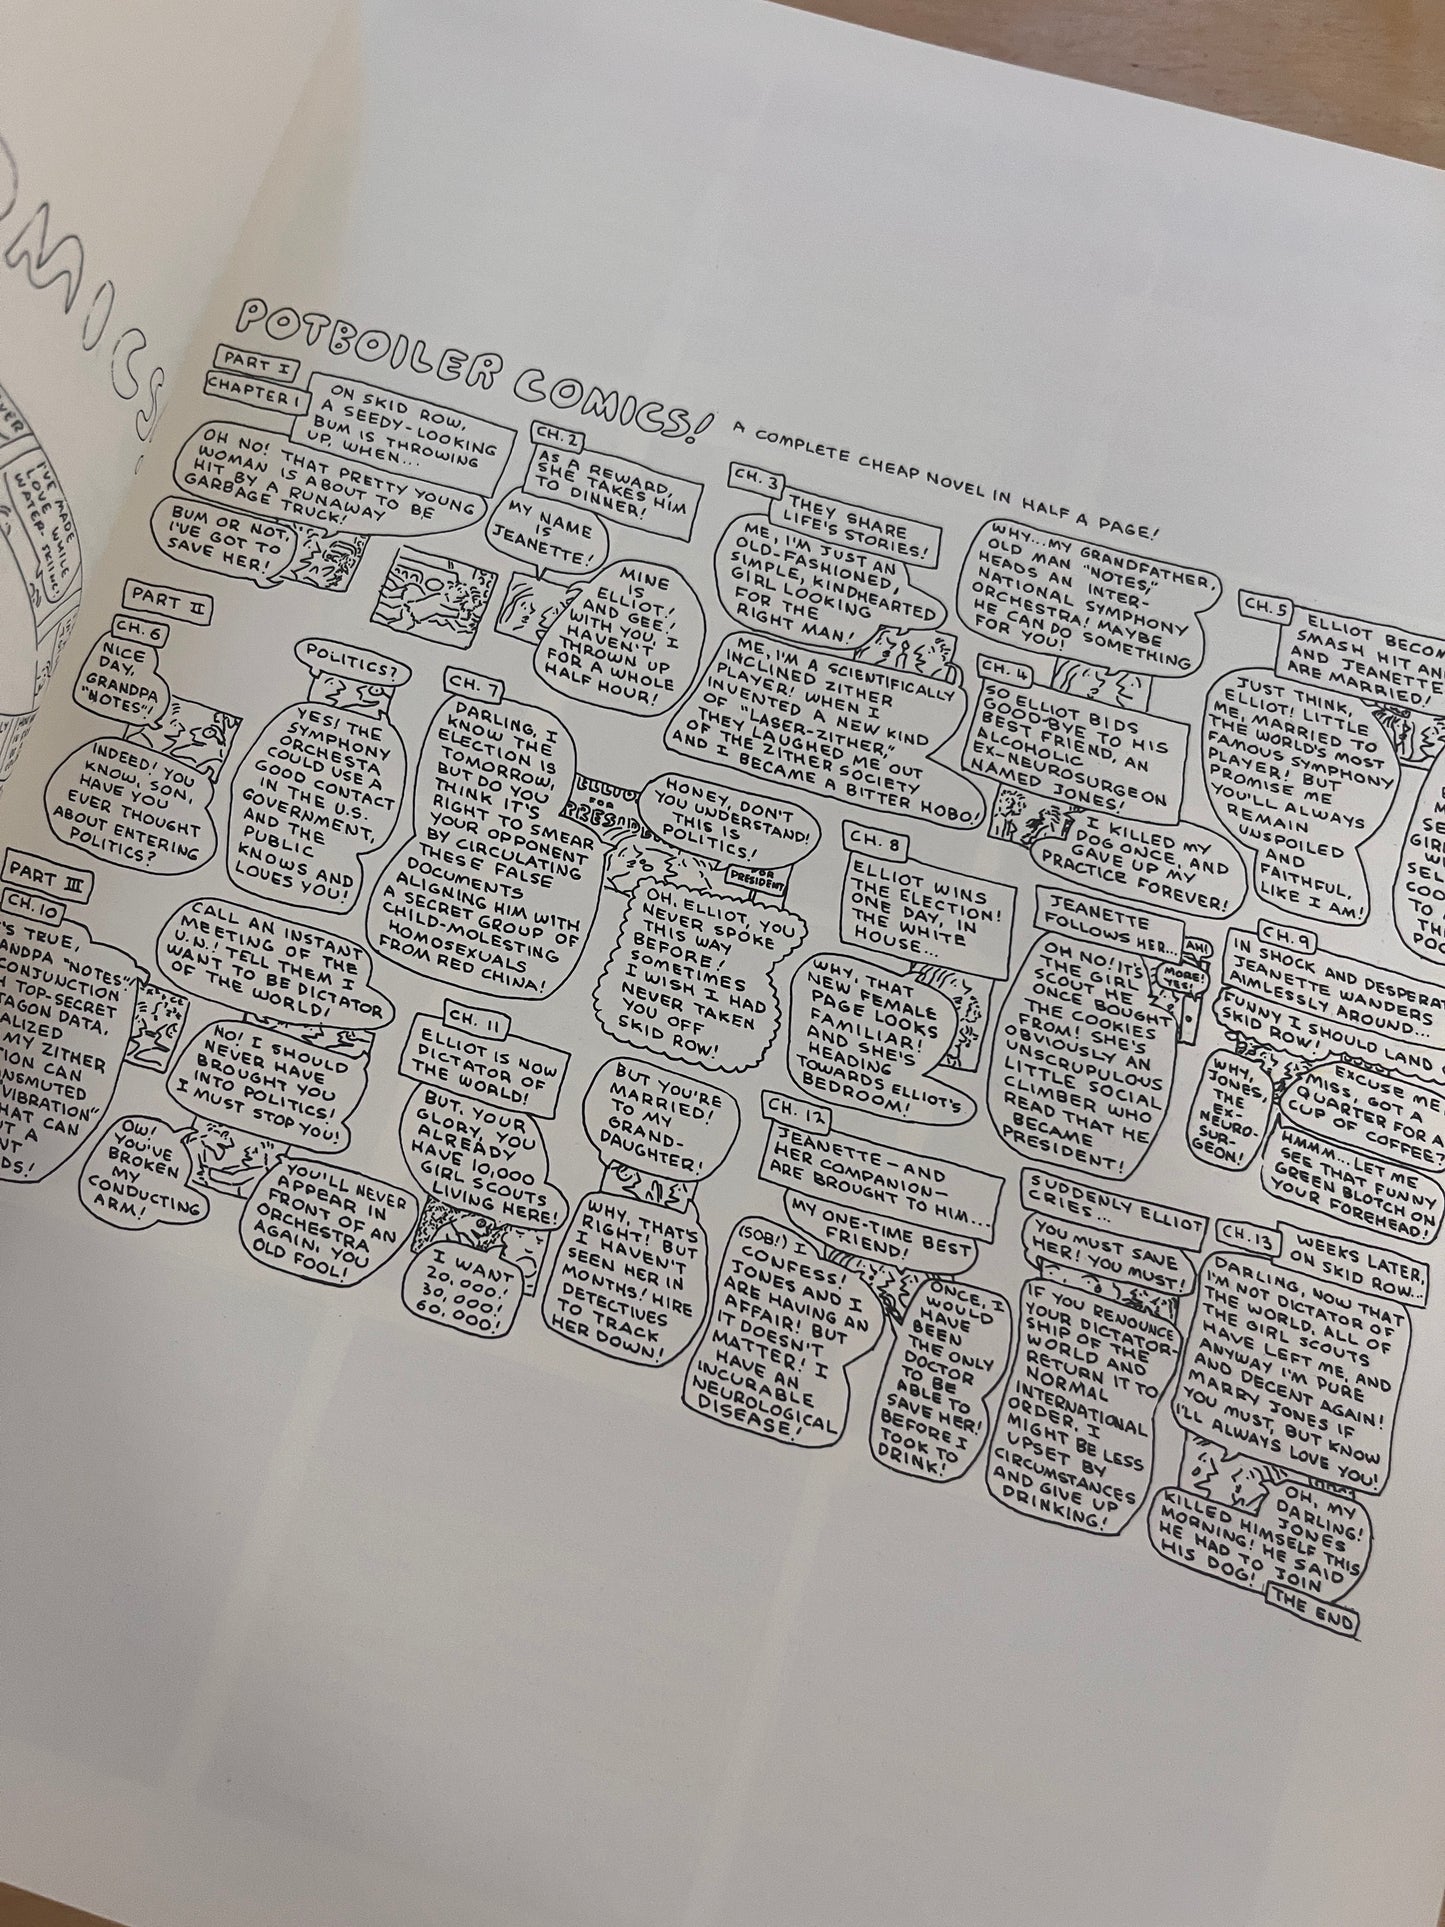 OMICS
I'VE MADE
LOVE WHILE
WATER-SKIING!
POTBOILER COMICS!
A COMPLETE CHEAP NOVEL IN HALF A PAGE!
PART I
CHAPTER 1
ON SKID ROW,
A SEEDY-LOOKING
BUM IS THROWING
UP, WHEN...
OH NO! THAT PRETTY YOUNG
WOMAN IS ABOUT TO BE
HIT BY A RUNAWAY
GARBAGE TRUCK!
BUM OR NOT,
I'VE GOT TO
SAVE HER!
CH. 2
AS A REWARD,
SHE TAKES HIM
TO DINNER!
MY NAME
IS
JEANETTE!
MINE
IS
ELLIOT!
AND GEE!
WITH YOU, I
HAVEN'T
THROWN UP
FOR A WHOLE
HALF HOUR!
CH. 3
THEY SHARE
LIFE'S STORIES!
ME, I'M JUST AN
OLD-FASHIONED,
SIMPLE, KINDHEARTED
GIRL LOOKING
FOR THE
RIGHT MAN!
ME, I'M A SCIENTIFICALLY
INCLINED ZITHER
PLAYER! WHEN I
INVENTED A NEW KIND
OF "LASER-ZITHER,"
THEY LAUGHED ME OUT
OF THE ZITHER SOCIETY
AND I BECAME A BITTER HOBO!
WHY...MY GRANDFATHER,
OLD MAN "NOTES,"
HEADS AN INTER-
NATIONAL SYMPHONY
ORCHESTRA! MAYBE
HE CAN DO SOMETHING
FOR YOU!
CH. 4
SO ELLIOT BIDS
GOOD-BYE TO HIS
BEST FRIEND, AN
ALCOHOLIC
EX-NEUROSURGEON
NAMED JONES!
I KILLED MY
DOG ONCE, AND
GAVE UP MY
PRACTICE FOREVER!
CH. 5
ELLIOT BECOM
SMASH HIT AN
AND JEANETTE
ARE MARRIED!
JUST THINK,
ELLIOT! LITTLE
ME, MARRIED TO
THE WORLD'S MOST
FAMOUS SYMPHONY
PLAYER! BUT
PROMISE ME
YOU'LL ALWAYS
REMAIN
UNSPOILED
AND
FAITHFUL,
LIKE I AM!
PART II
CH. 6
NICE
DAY,
GRANDPA
"NOTES"!
INDEED! YOU
KNOW, SON,
HAVE YOU
EVER THOUGHT
ABOUT ENTERING
POLITICS?
POLITICS?
YES! THE
SYMPHONY
ORCHESTA
COULD USE A
GOOD CONTACT
IN THE U.S.
GOVERNMENT,
AND THE
PUBLIC
KNOWS AND
LOVES YOU!
CH. 7
DARLING, I
KNOW THE
ELECTION IS
TOMORROW,
BUT DO YOU
THINK IT'S
RIGHT TO SMEAR
YOUR OPPONENT
BY CIRCULATING
THESE FALSE
DOCUMENTS
ALIGNING HIM WITH
A SECRET GROUP OF
CHILD-MOLESTING
HOMOSEXUALS
FROM RED CHINA!
FOR
HONEY, DON'T
YOU UNDERSTAND!
THIS IS
POLITICS!
FOR
PRESIDENT
OH, ELLIOT, YOU
NEVER SPOKE
THIS WAY
BEFORE!
SOMETIMES
I WISH I HAD
NEVER TAKEN
YOU OFF
SKID ROW!
CH. 8
ELLIOT WINS
THE ELECTION!
ONE DAY, IN
THE WHITE
HOUSE....
WHY, THAT
NEW FEMALE
PAGE LOOKS
FAMILIAR!
AND SHE'S
HEADING
TOWARDS ELLIOT'S
BEDROOM!
JEANETTE
FOLLOWS HER...
AH!
MORE!
YES!
OH NO! IT'S
THE GIRL
SCOUT HE
ONCE BOUGHT
THE COOKIES
FROM! SHE'S
OBVIOUSLY AN
UNSCRUPULOUS
LITTLE SOCIAL
CLIMBER WHO
READ THAT HE
BECAME
PRESIDENT!
CH. 9
IN SHOCK AND DESPERAT
JEANETTE WANDERS
AIMLESSLY AROUND...
FUNNY I SHOULD LAND
SKID ROW!
WHY,
JONES,
THE
EX-
NEURO-
SUR-
GEON!
EXCUSE ME
MISS, GOT A
QUARTER FOR A
CUP OF COFFEE?
HMMM...LET ME
SEE THAT FUNNY
GREEN BLOTCH ON
YOUR FOREHEAD!
PART III
CH. 10
'S TRUE,
ANDPA "NOTES"!
CONJUNCTION
H TOP-SECRET
TAGON DATA,
ALIZED
MY ZITHER
TION CAN
ANSMUTED
"VIBRATION"
HAT CAN
UT A
NT
DS!
CALL AN INSTANT
MEETING OF THE
U.N.! TELL THEM I
WANT TO BE DICTATOR
OF THE WORLD!
NO! I SHOULD
NEVER HAVE
BROUGHT YOU
INTO POLITICS!
I MUST STOP YOU!
OW!
YOU'VE
BROKEN
MY
CONDUCTING
ARM!
YOU'LL NEVER
APPEAR IN
FRONT OF AN
ORCHESTRA
AGAIN, YOU
OLD FOOL!
CH. 11
ELLIOT IS NOW
DICTATOR OF
THE WORLD!
BUT, YOUR
GLORY, YOU
ALREADY
HAVE 10,000
GIRL SCOUTS
LIVING HERE!
I WANT
20,000!
30,000!
60,000!
BUT YOU'RE
MARRIED!
TO MY
GRAND-
DAUGHTER!
WHY, THAT'S
RIGHT! BUT
I HAVEN'T
SEEN HER IN
MONTHS! HIRE
DETECTIVES
TO TRACK
HER DOWN!
CH. 12
JEANETTE—AND
HER COMPANION—
ARE BROUGHT TO HIM...
MY ONE-TIME BEST
FRIEND!
(SOB!) I
CONFESS!
JONES AND I
ARE HAVING AN
AFFAIR! BUT
IT DOESN'T
MATTER! I
HAVE AN
INCURABLE
NEUROLOGICAL
DISEASE!
ONCE, I
WOULD
HAVE
BEEN
THE ONLY
DOCTOR
TO BE
ABLE TO
SAVE HER!
BEFORE I
TOOK TO
DRINK!
SUDDENLY ELLIOT
CRIES...
YOU MUST SAVE
HER! YOU MUST!
IF YOU RENOUNCE
YOUR DICTATOR-
SHIP OF THE
WORLD AND
RETURN IT TO
NORMAL
INTERNATIONAL
ORDER, I
MIGHT BE LESS
UPSET BY
CIRCUMSTANCES
AND GIVE UP
DRINKING!
CH. 13
WEEKS LATER,
ON SKID ROW...
DARLING, NOW THAT
I'M NOT DICTATOR OF
THE WORLD, ALL OF
THE GIRL SCOUTS
HAVE LEFT ME, AND
ANYWAY I'M PURE
AND DECENT AGAIN!
MARRY JONES IF
YOU MUST, BUT KNOW
I'LL ALWAYS LOVE YOU!
OH, MY
DARLING!
JONES
KILLED HIMSELF THIS
MORNING! HE SAID
HE HAD TO JOIN
HIS DOG!
THE END